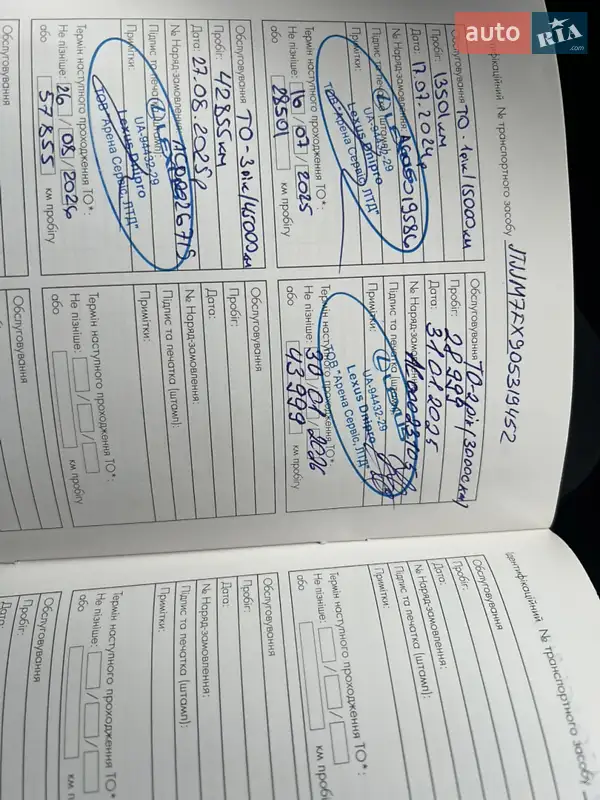 auto RIA.com
Ідентифікаційний № транспортного засобу
Обслуговування ТО-1рік/15000км
Пробіг: 13501км
Дата: 17.07.2024р
№ Наряд-замовлення:
Підпис та печатка (штамп):
Примітки:
UA-94432-29
Lexus Dnipro
ТОВ "Арена Сервіс, ЛТД"
Термін наступного проходження ТО*:
Не пізніше: 16/07/2025
або 28501 км пробігу
Обслуговування ТО-2рік/30000км
Пробіг: 28999
Дата: 31.01.2025
№ Наряд-замовлення:
Підпис та печатка (штамп):
Примітки:
UA-94432-29
Lexus Dnipro
ТОВ "Арена Сервіс, ЛТД"
Термін наступного проходження ТО*:
Не пізніше: 30/01/2026
або 43999 км пробігу
Обслуговування ТО-3рік/45000км
Пробіг: 42855км
Дата: 27.08.2025р
№ Наряд-замовлення:
Підпис та печатка (штамп):
Примітки:
UA-94432-29
Lexus Dnipro
ТОВ "Арена Сервіс, ЛТД"
Термін наступного проходження ТО*:
Не пізніше: 26/08/2026
або 57855 км пробігу
Обслуговування
Пробіг:
Дата:
№ Наряд-замовлення:
Підпис та печатка (штамп):
Примітки:
Термін наступного проходження ТО*:
Не пізніше:
або км пробігу
Обслуговування
Обслуговування
Ідентифікаційний № транспортного засобу
Обслуговування
Пробіг:
Дата:
№ Наряд-замовлення:
Підпис та печатка (штамп):
Примітки:
Термін наступного проходження ТО*:
Не пізніше:
або км пробігу
Обслуговування
Пробіг:
Дата:
№ Наряд-замовлення:
Підпис та печатка (штамп):
Примітки:
Термін наступного проходження ТО*:
Не пізніше:
або км пробігу
Обслуговування
Пробіг:
Дата: